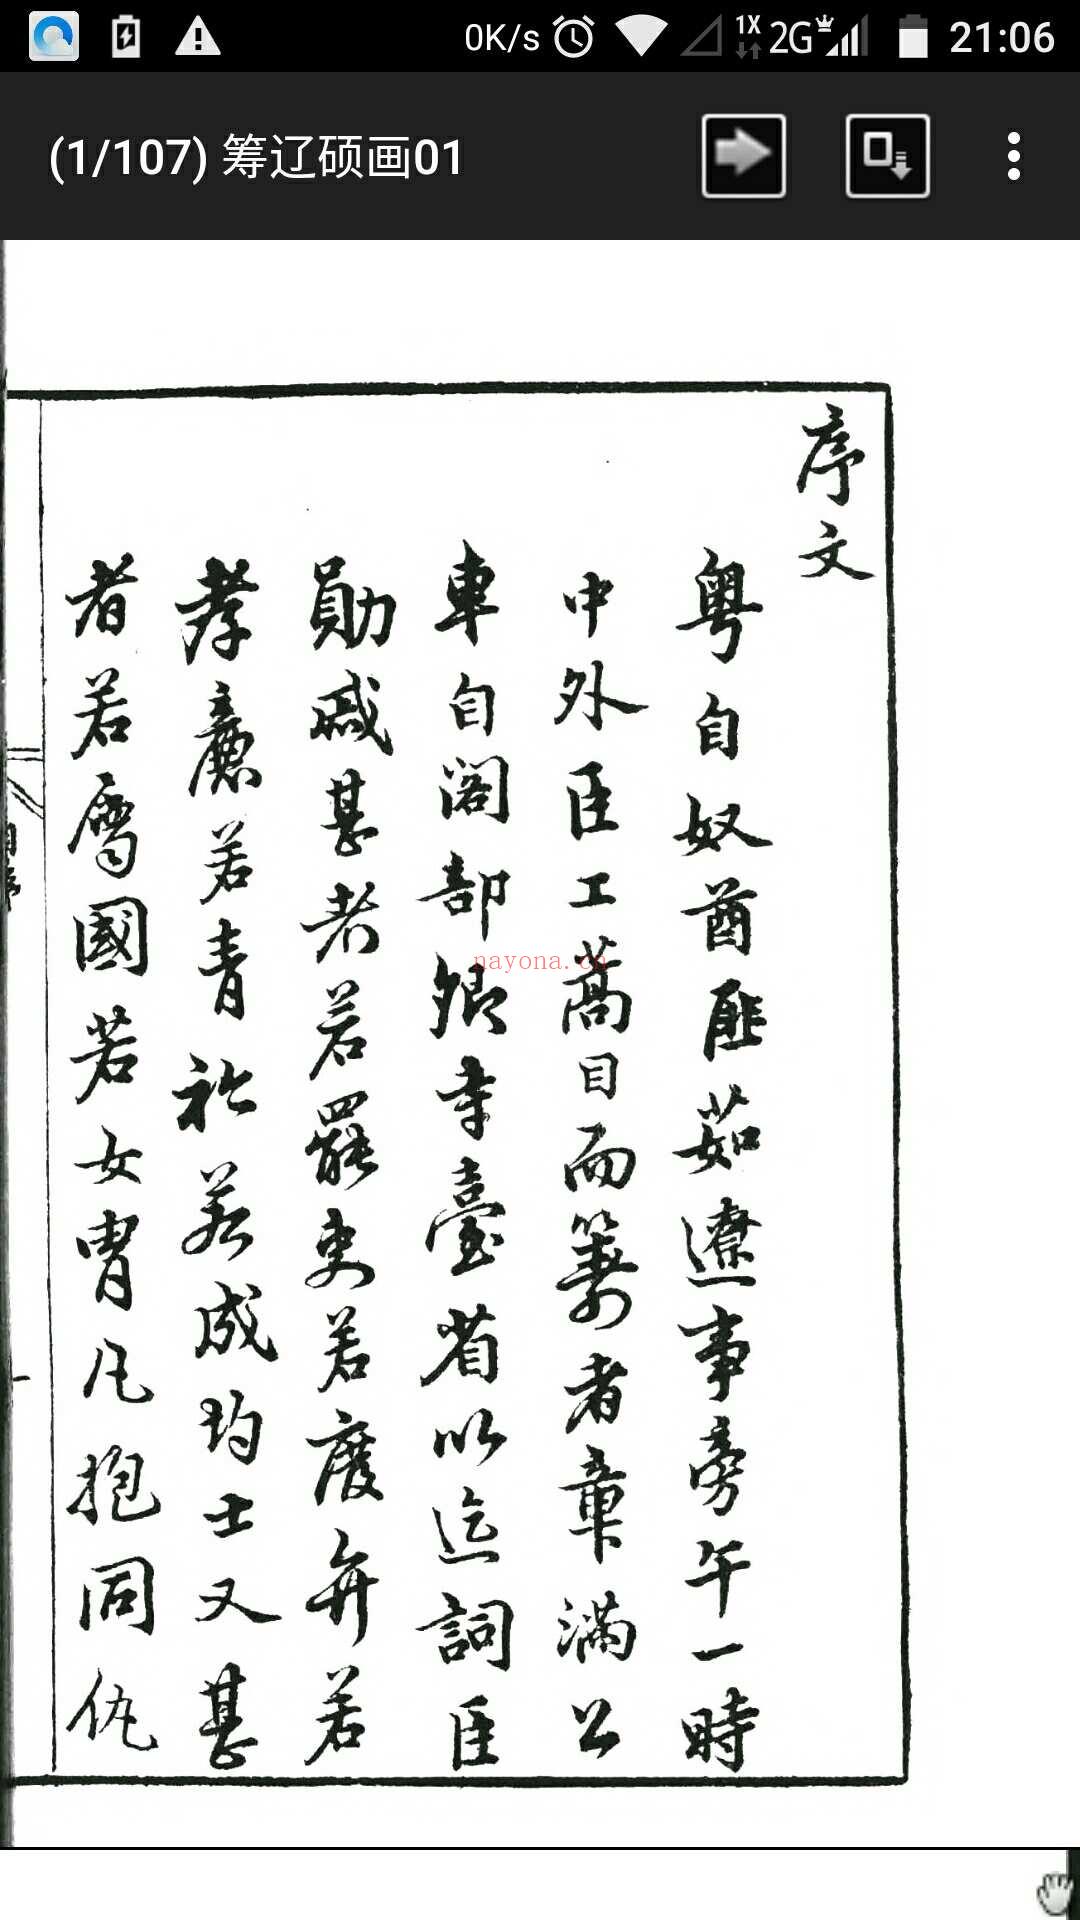 0K/s 1X 2G 21:06
(1/107) 筹辽硕画01
序文
粤自奴酋匪茹遼事旁午一時
中外臣工蒿目而籌者章滿公
車自閣部卿寺臺省以迄詞臣
勛戚甚者若罷吏若廢弁若
孝廉若青衿若成均士又甚
者若寓國若女冑凡抱同仇
nayona.cn